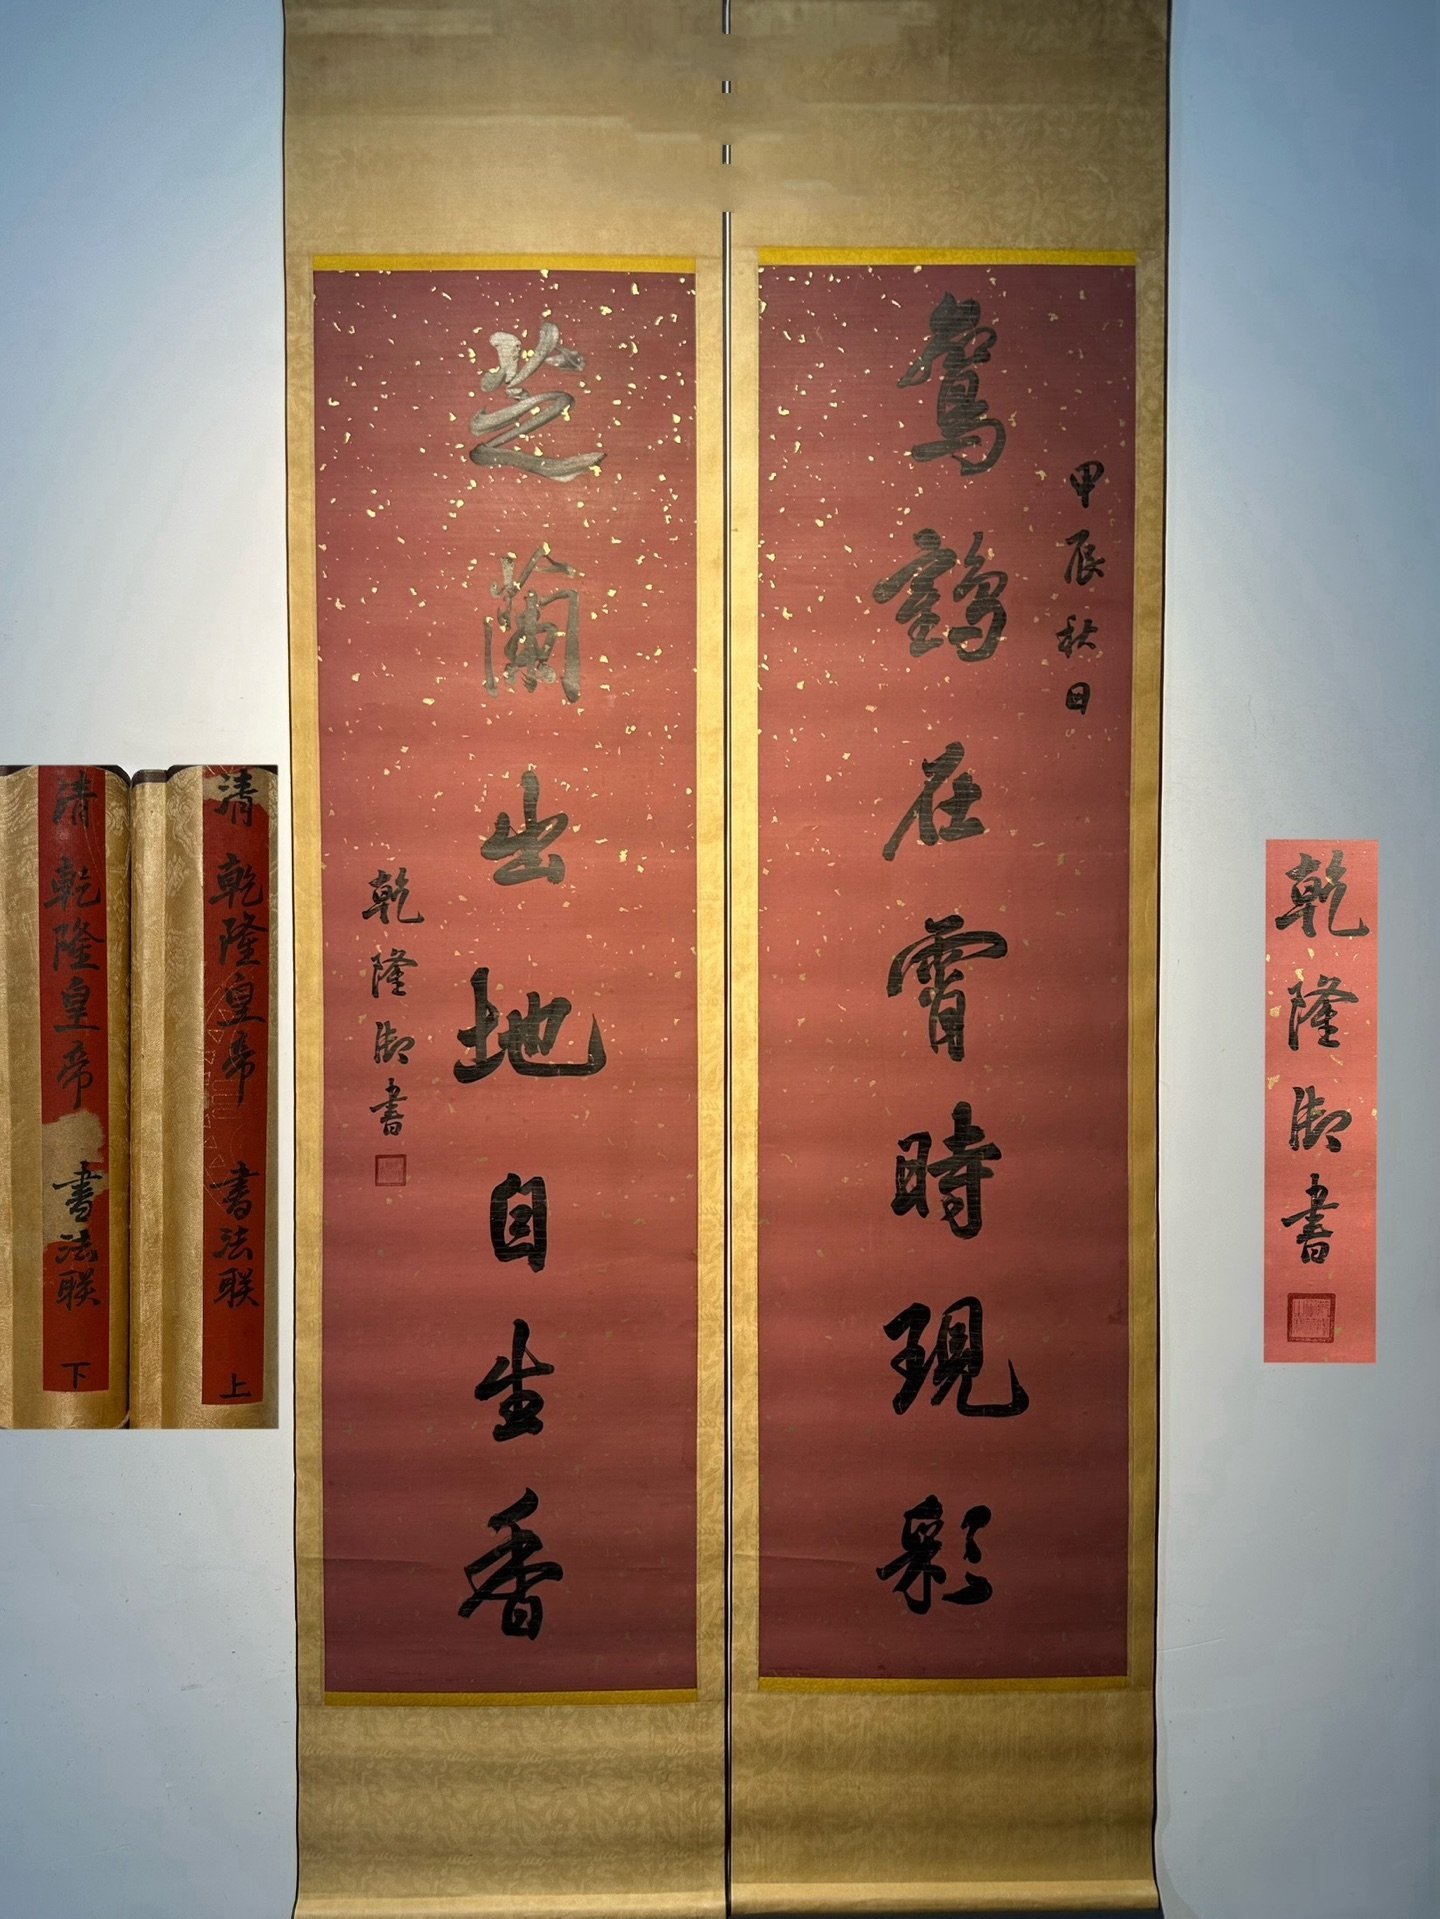 鸞鶴在霄時現彩
甲辰秋日
芝蘭出地自生香
乾隆御書
清 乾隆皇帝 書法联 上
清 乾隆皇帝 書法联 下
乾隆御書